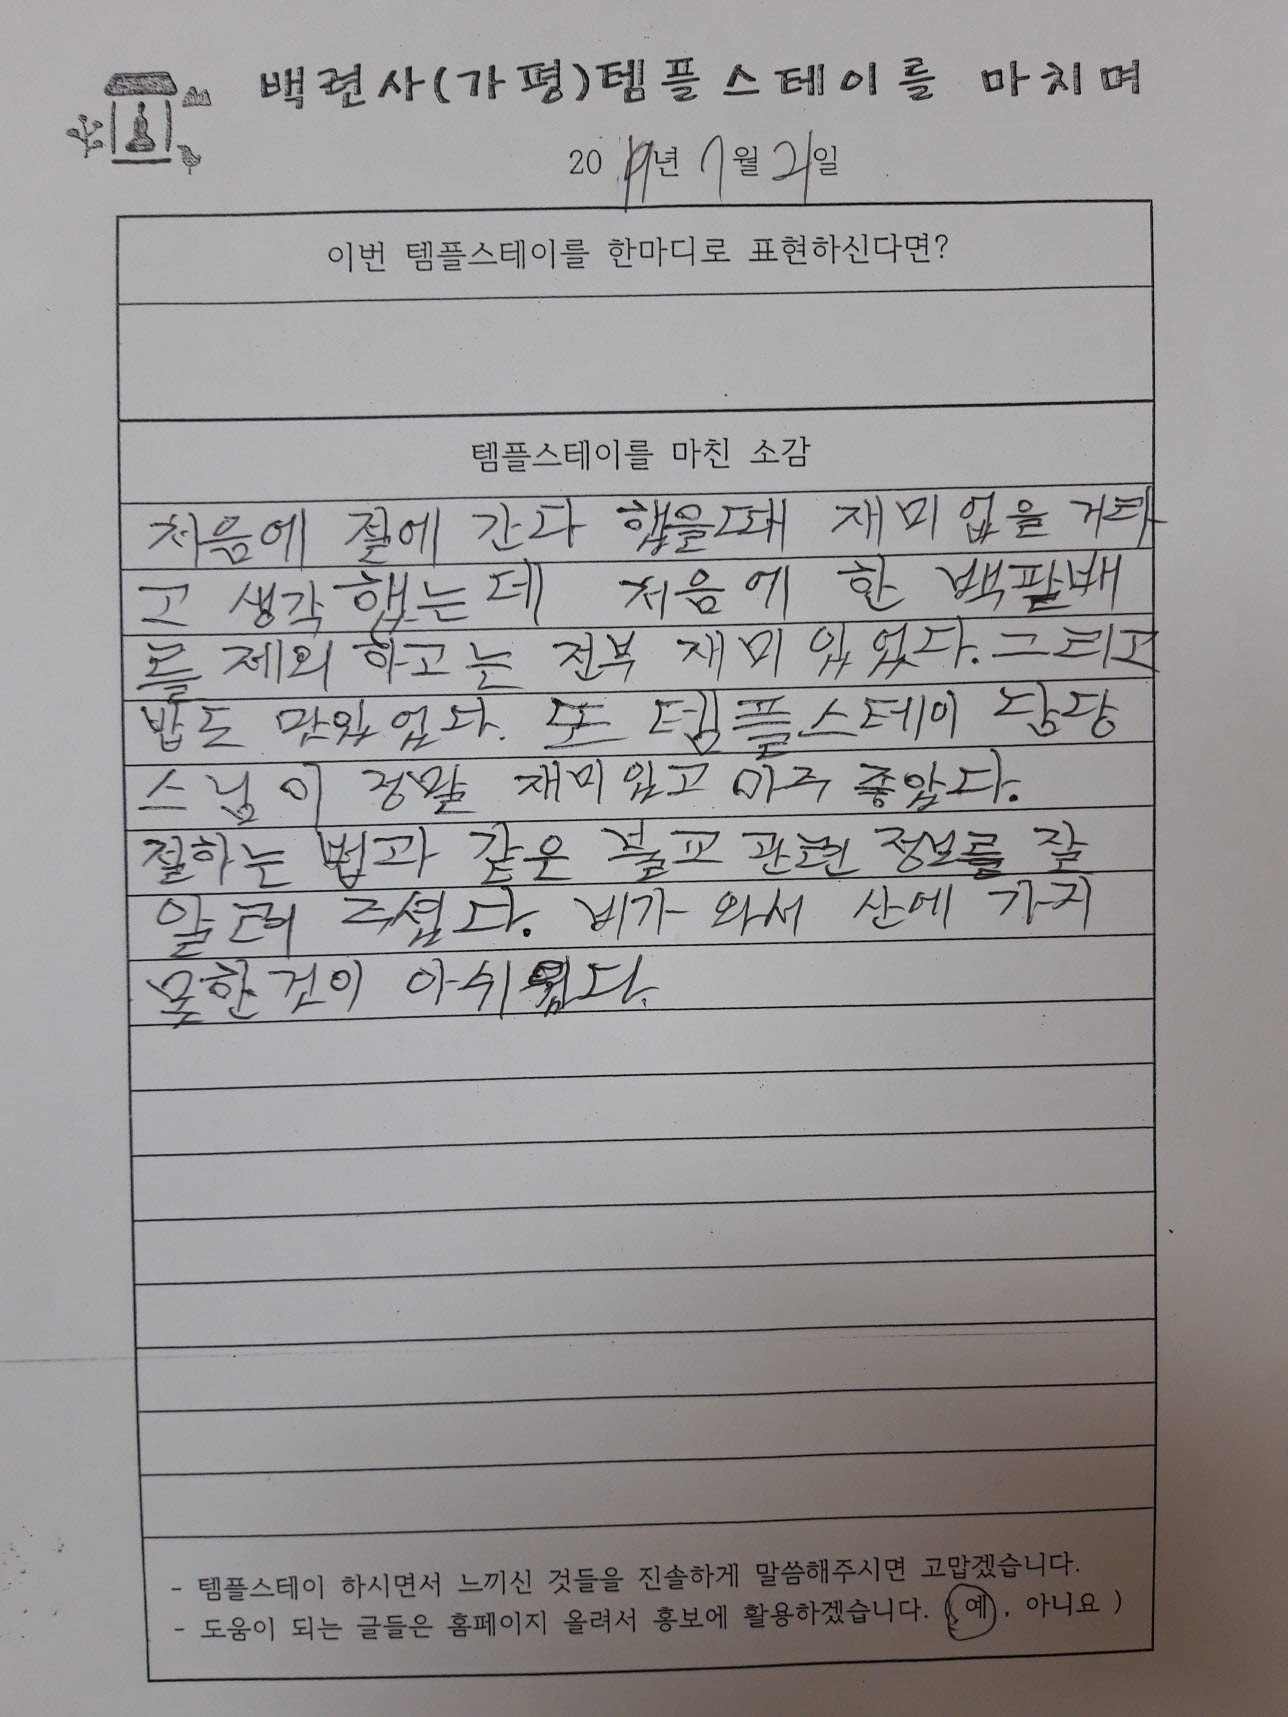 백련사(가평)템플스테이를 마치며
2019년 7월 21일
이번 템플스테이를 한마디로 표현하신다면?
템플스테이를 마친 소감
처음에 절에 간다 했을때 재미 없을 거라
고 생각 했는데 처음에 한 백팔배
를 제외 하고는 전부 재미 있었다. 그리고
밥도 맛있었다. 또 템플스테이 담당
스님이 정말 재미있고 아주 좋았다.
절하는 법과 같은 불교 관련 정보를 잘
알려 주셨다. 비가 와서 산에 가지
못한것이 아쉬웠다.
- 템플스테이 하시면서 느끼신 것들을 진솔하게 말씀해주시면 고맙겠습니다.
- 도움이 되는 글들은 홈페이지 올려서 홍보에 활용하겠습니다. ( 예 , 아니요 )